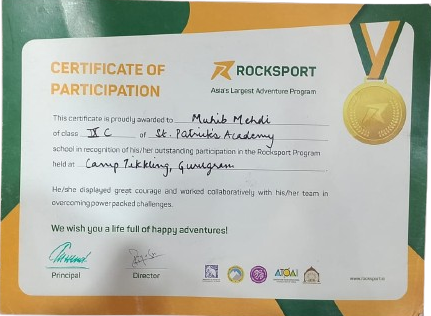 CERTIFICATE OF
PARTICIPATION
ROCKSPORT
Asia's Largest Adventure Program
This certificate is proudly awarded to Muhib Mehdi
of class IX C of St. Patrick's Academy
school in recognition of his/her outstanding participation in the Rocksport Program
held at Camp Tikkling, Gurugram
He/she displayed great courage and worked collaboratively with his/her team in
overcoming power packed challenges.
We wish you a life full of happy adventures!
Principal
Director
ATOAI
www.rocksport.in